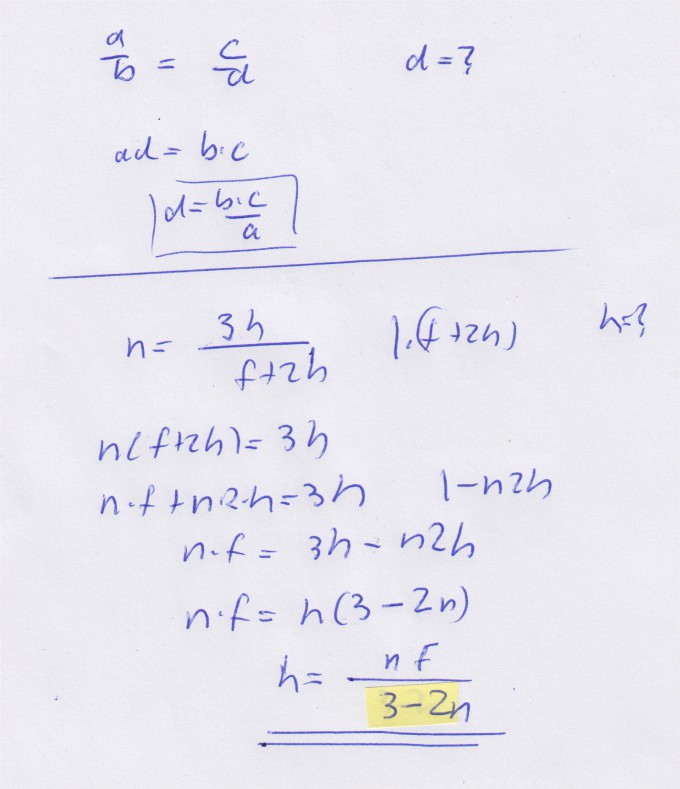 a/b = c/d d=?
ad= b·c
d= b·c/a
n= 3h/f+2h |·(f+2h) h=?
n(f+2h)= 3h
n·f+n2·h=3h |-n2h
n·f= 3h-n2h
n·f= h(3-2n)
h= nf/3-2n